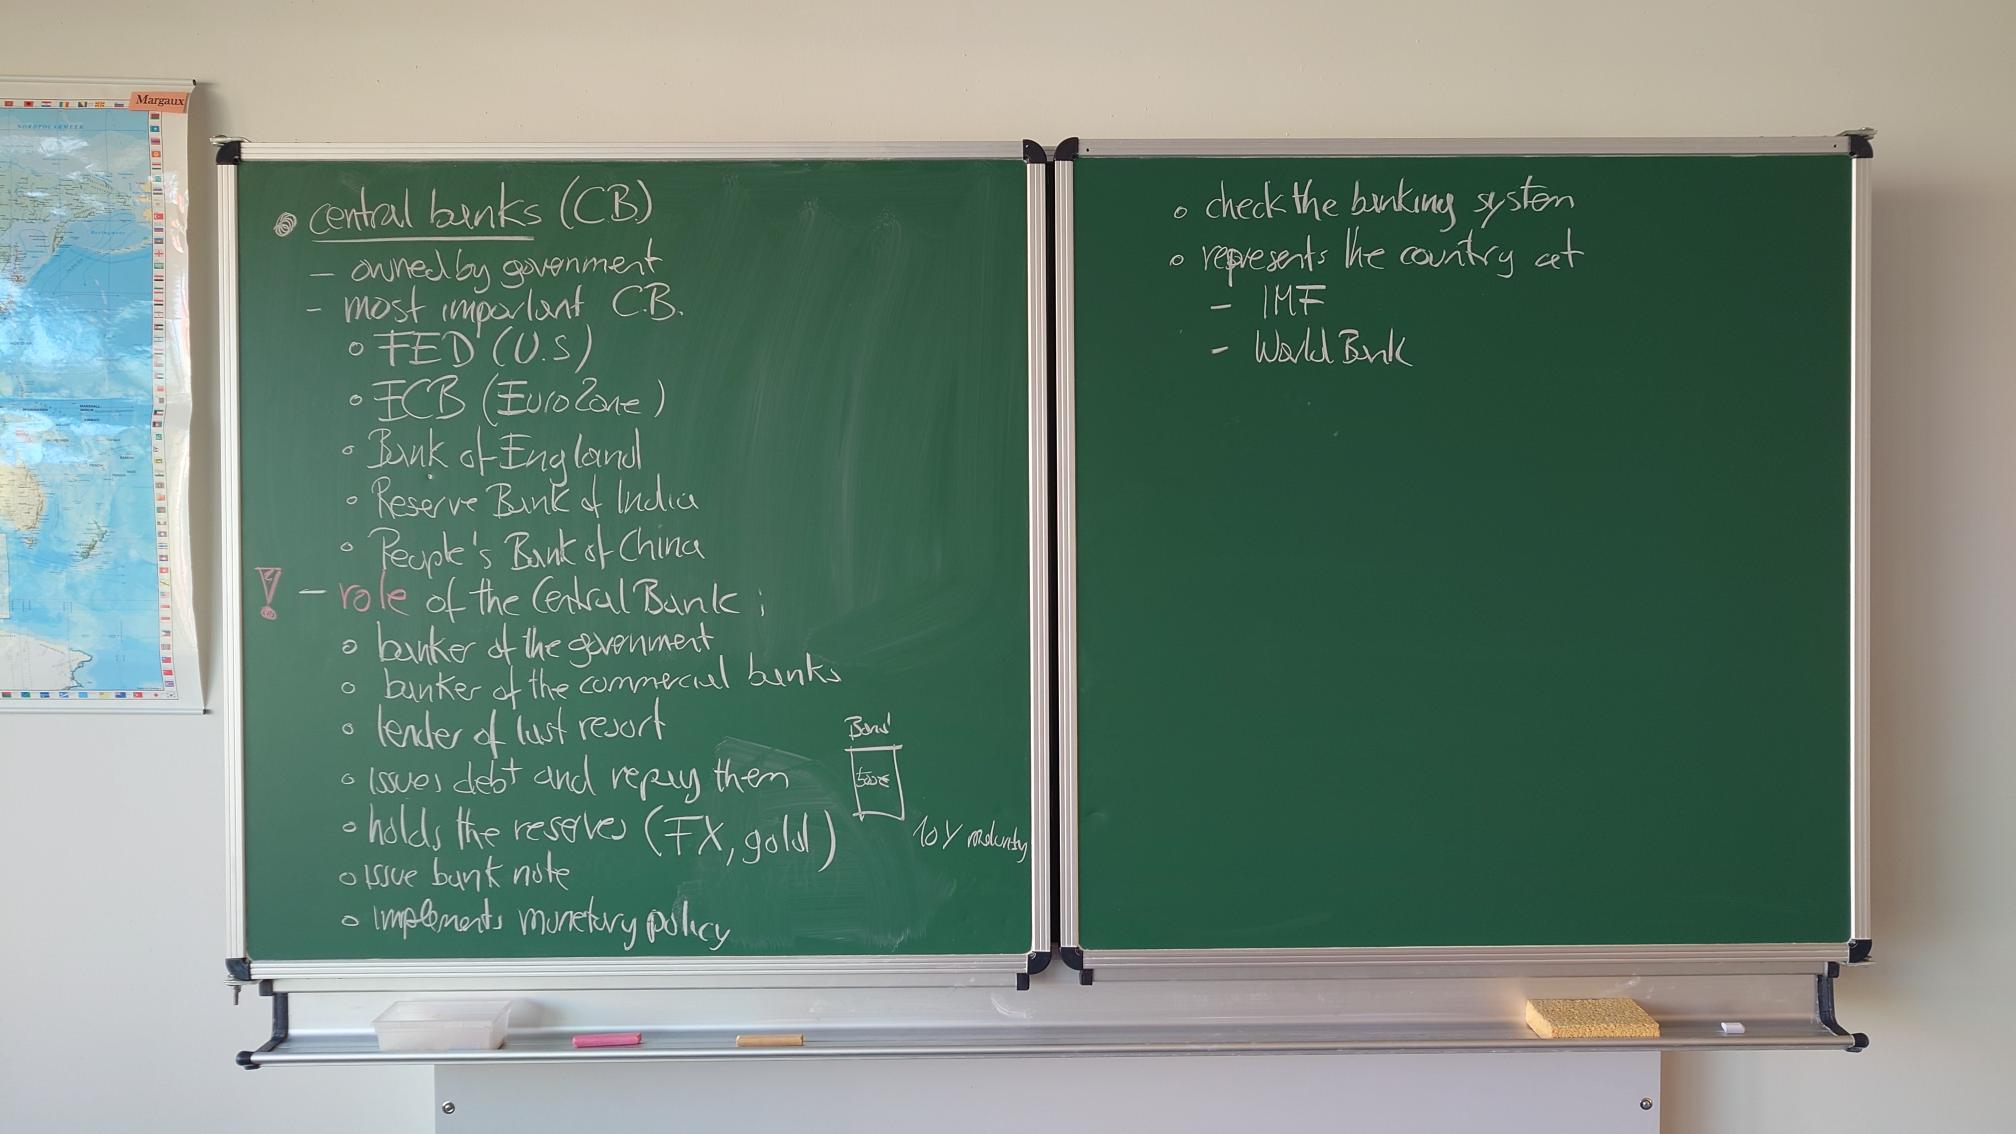 Margaux
NORDPOLARMEER
central banks (CB)
– owned by government
– most important C.B.
FED (U.S)
ECB (EuroZone)
Bank of England
Reserve Bank of India
People's Bank of China
! – role of the Central Bank ;
banker of the government
banker of the commercial banks
lender of last resort
issues debt and repay them
Bond
10 Y maturity
holds the reserves (FX, gold)
issue bank note
implements monetary policy
check the banking system
represents the country at
– IMF
– World Bank